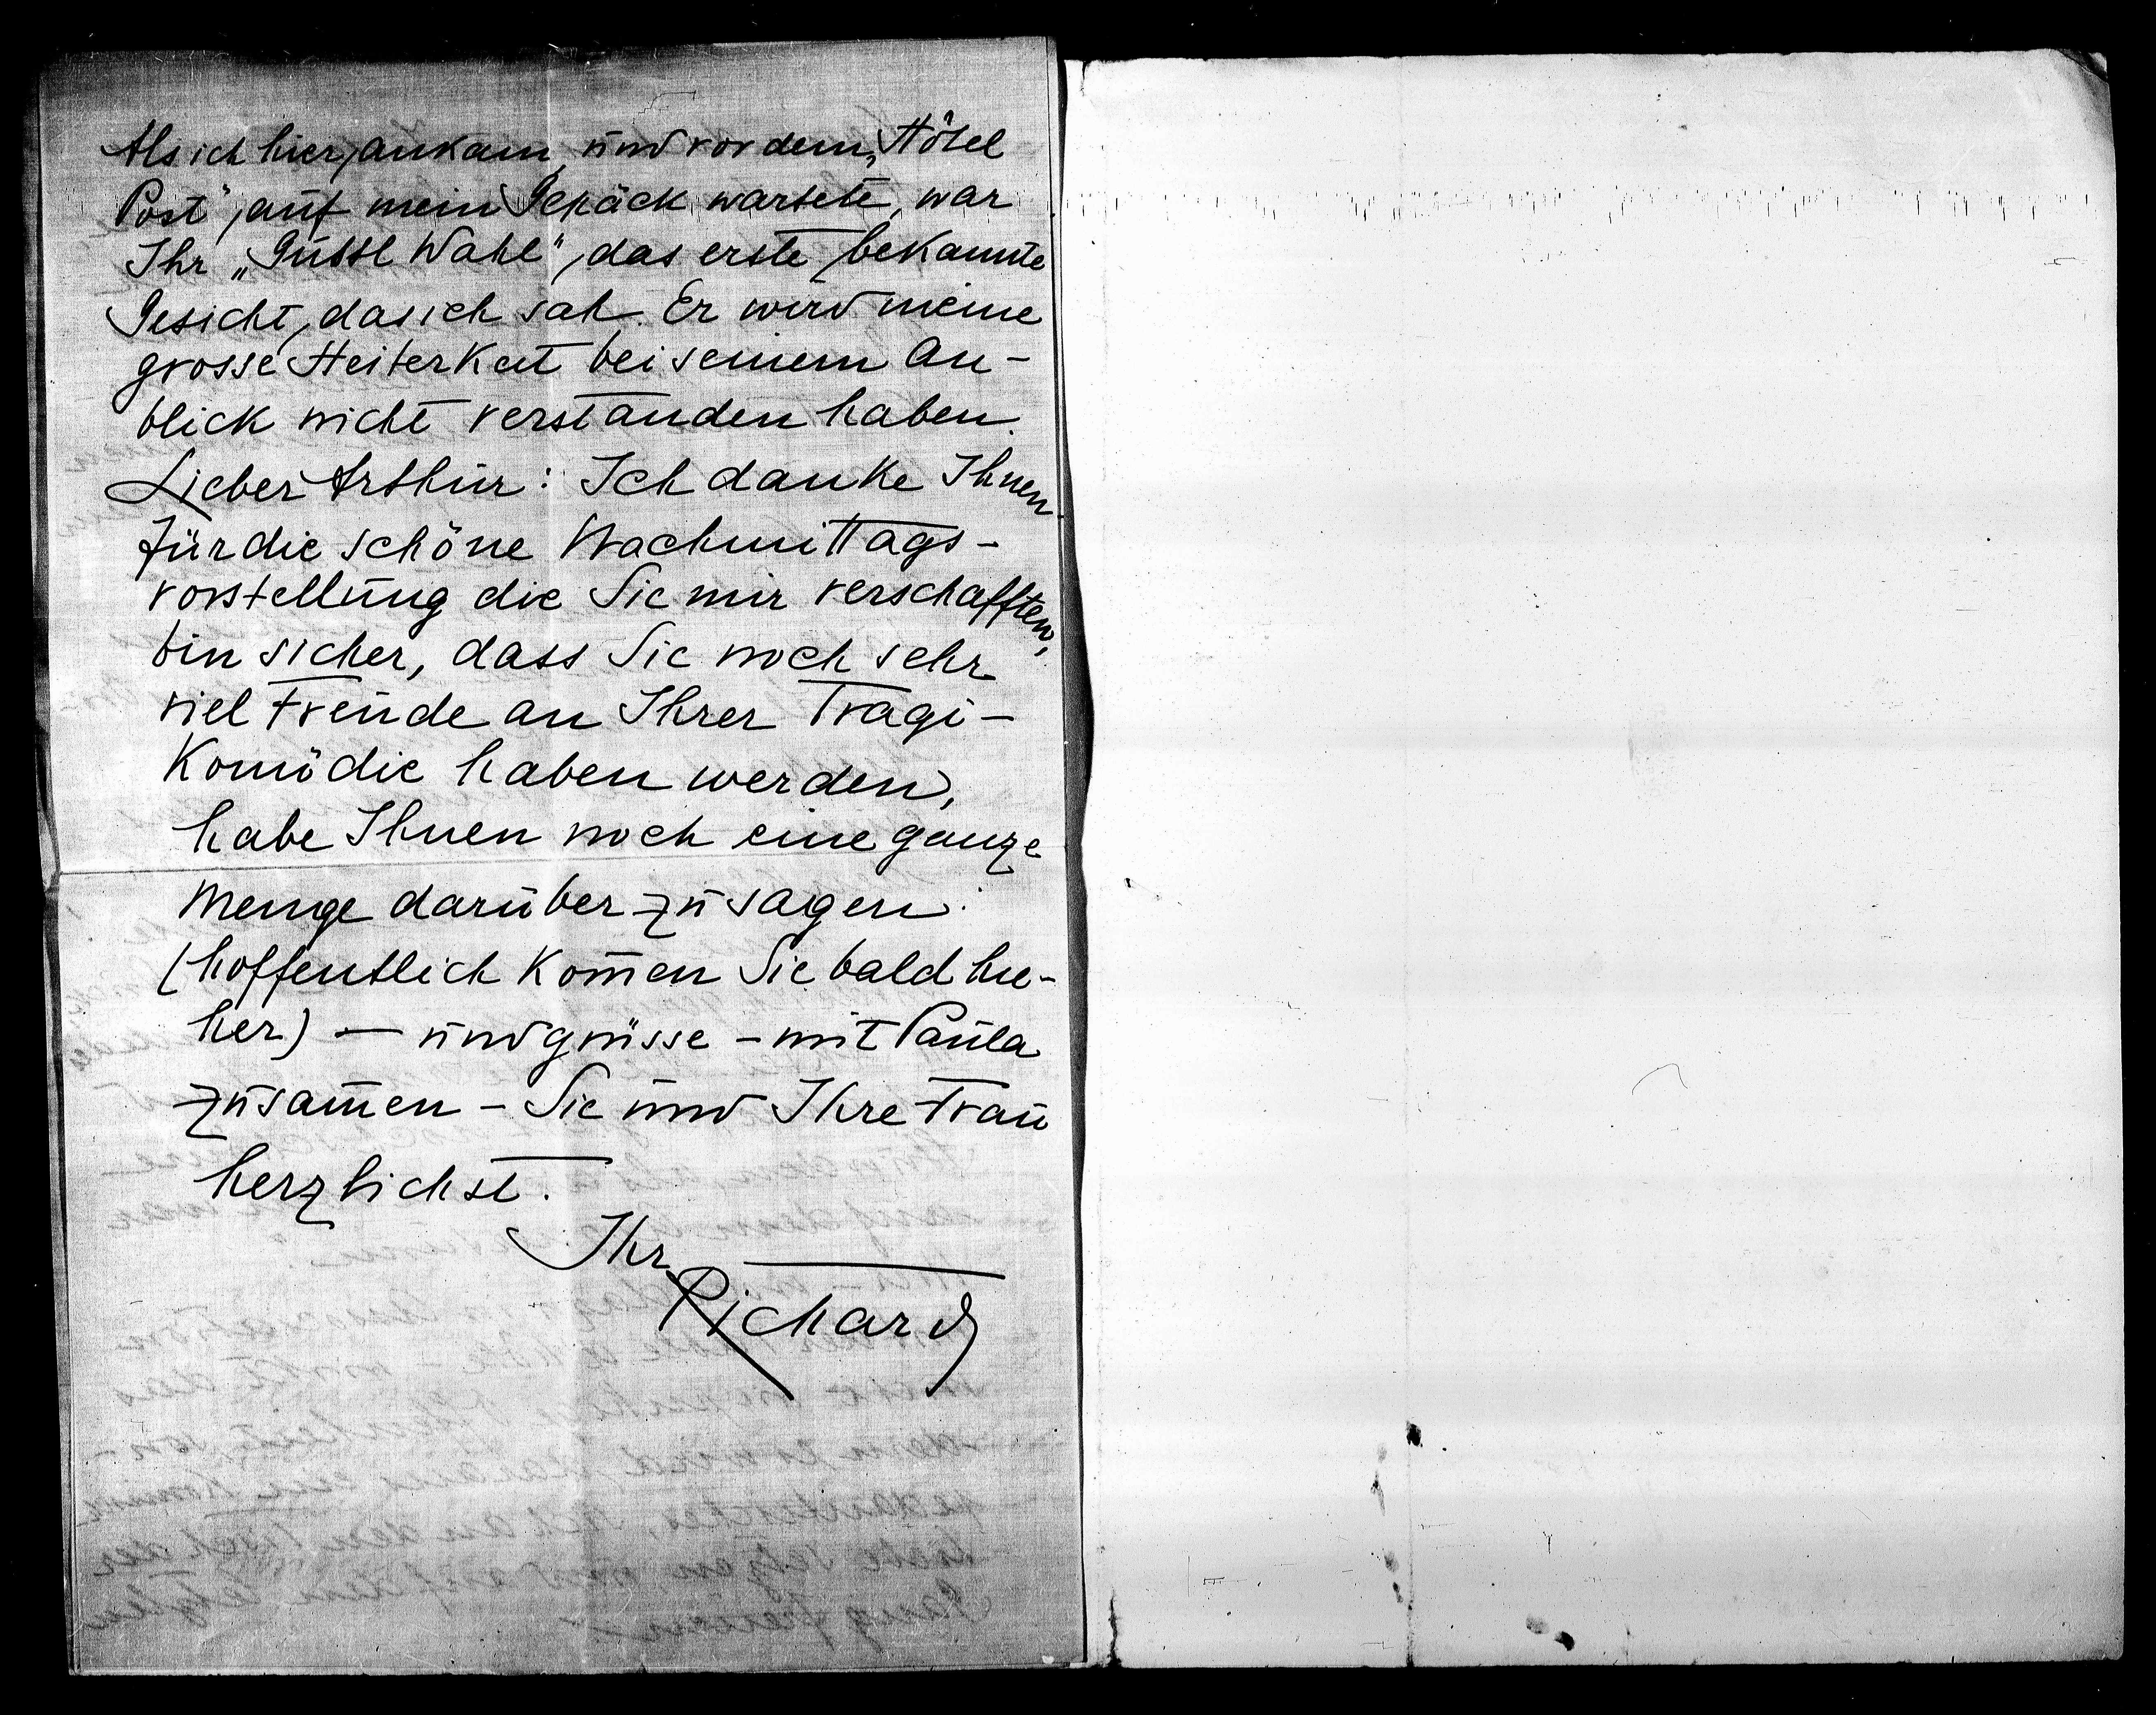 Als ich hier ankam, und vor dem „Hôtel
Post“, auf mein Gepäck wartete, war
Ihr „Gustl Wahl“, das erste bekannte
Gesicht, das ich sah. Er wird meine
grosse Heiterkeit bei seinem An-
blick nicht verstanden haben.
Lieber Arthur: Ich danke Ihnen
für die schöne Nachmittags-
vorstellung die Sie mir verschafften,
bin sicher, dass Sie noch sehr
viel Freude an Ihrer Tragi-
Komödie haben werden,
habe Ihnen noch eine ganze
Menge darüber zu sagen.
(hoffentlich kom̅en Sie bald hie-
her) — und grüsse – mit Paula
zusam̅en – Sie und Ihre Frau
herzlichst.
Ihr
Richard